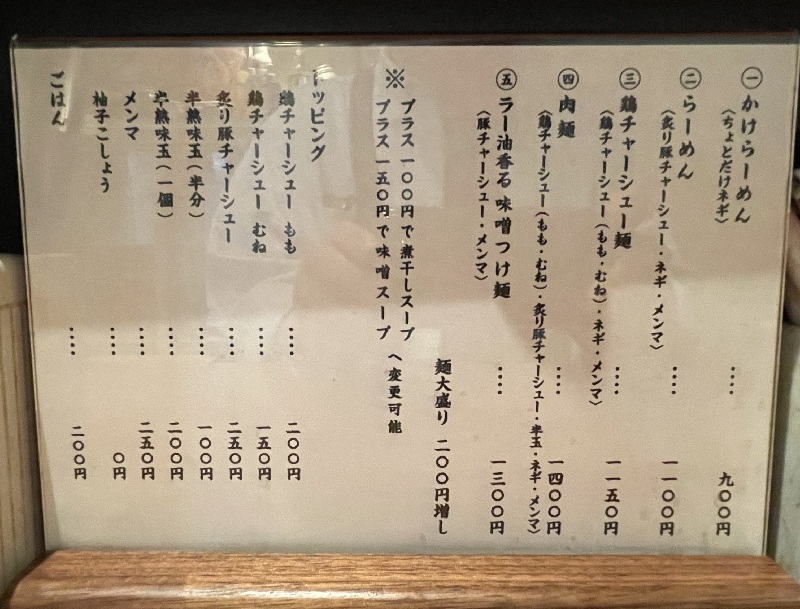 ㊀ かけらーめん ‥‥ 九〇〇円
(ちょとだけネギ)
㊁ らーめん ‥‥ 一一〇〇円
(炙り豚チャーシュー・ネギ・メンマ)
㊂ 鶏チャーシュー麺 ‥‥ 一一五〇円
(鶏チャーシュー(もも・むね)・ネギ・メンマ)
㊃ 肉麺 ‥‥ 一四〇〇円
(鶏チャーシュー(もも・むね)・炙り豚チャーシュー・半玉・ネギ・メンマ)
㊄ ラー油香る味噌つけ麺 ‥‥ 一三〇〇円
(豚チャーシュー・メンマ)
麺大盛り 二〇〇円増し
※ プラス一〇〇円で煮干しスープ
プラス一五〇円で味噌スープ へ変更可能
トッピング
鶏チャーシュー もも ‥‥ 二〇〇円
鶏チャーシュー むね ‥‥ 一五〇円
炙り豚チャーシュー ‥‥ 二五〇円
半熟味玉(半分) ‥‥ 一〇〇円
半熟味玉(一個) ‥‥ 二〇〇円
メンマ ‥‥ 二五〇円
柚子こしょう ‥‥ 〇円
ごはん ‥‥ 二〇〇円